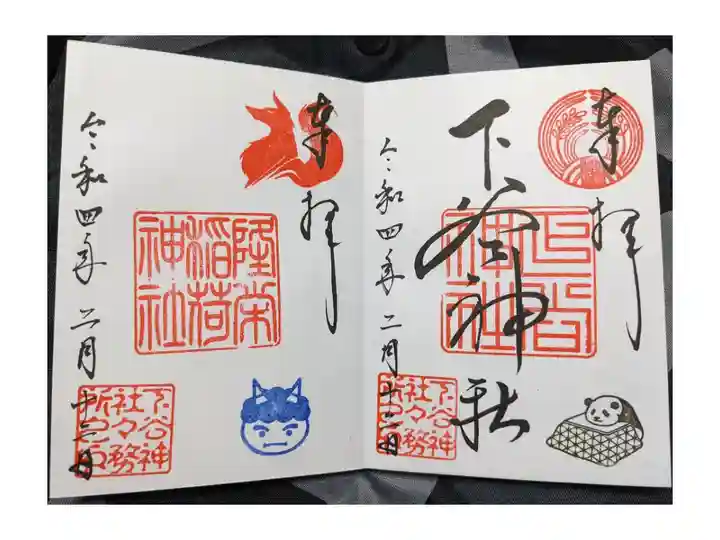 奉拝
下谷神社
下谷神社
令和四年二月十三日
下谷神社々務所之印
奉拝
隆栄稲荷神社
令和四年二月十三日
下谷神社々務所之印